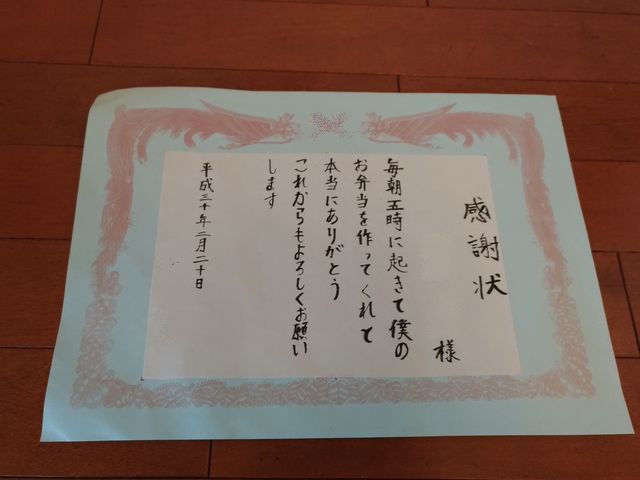 感謝状
様
毎朝五時に起きて僕の
お弁当を作ってくれて
本当にありがとう
これからもよろしくお願い
します
平成三十年二月二十日